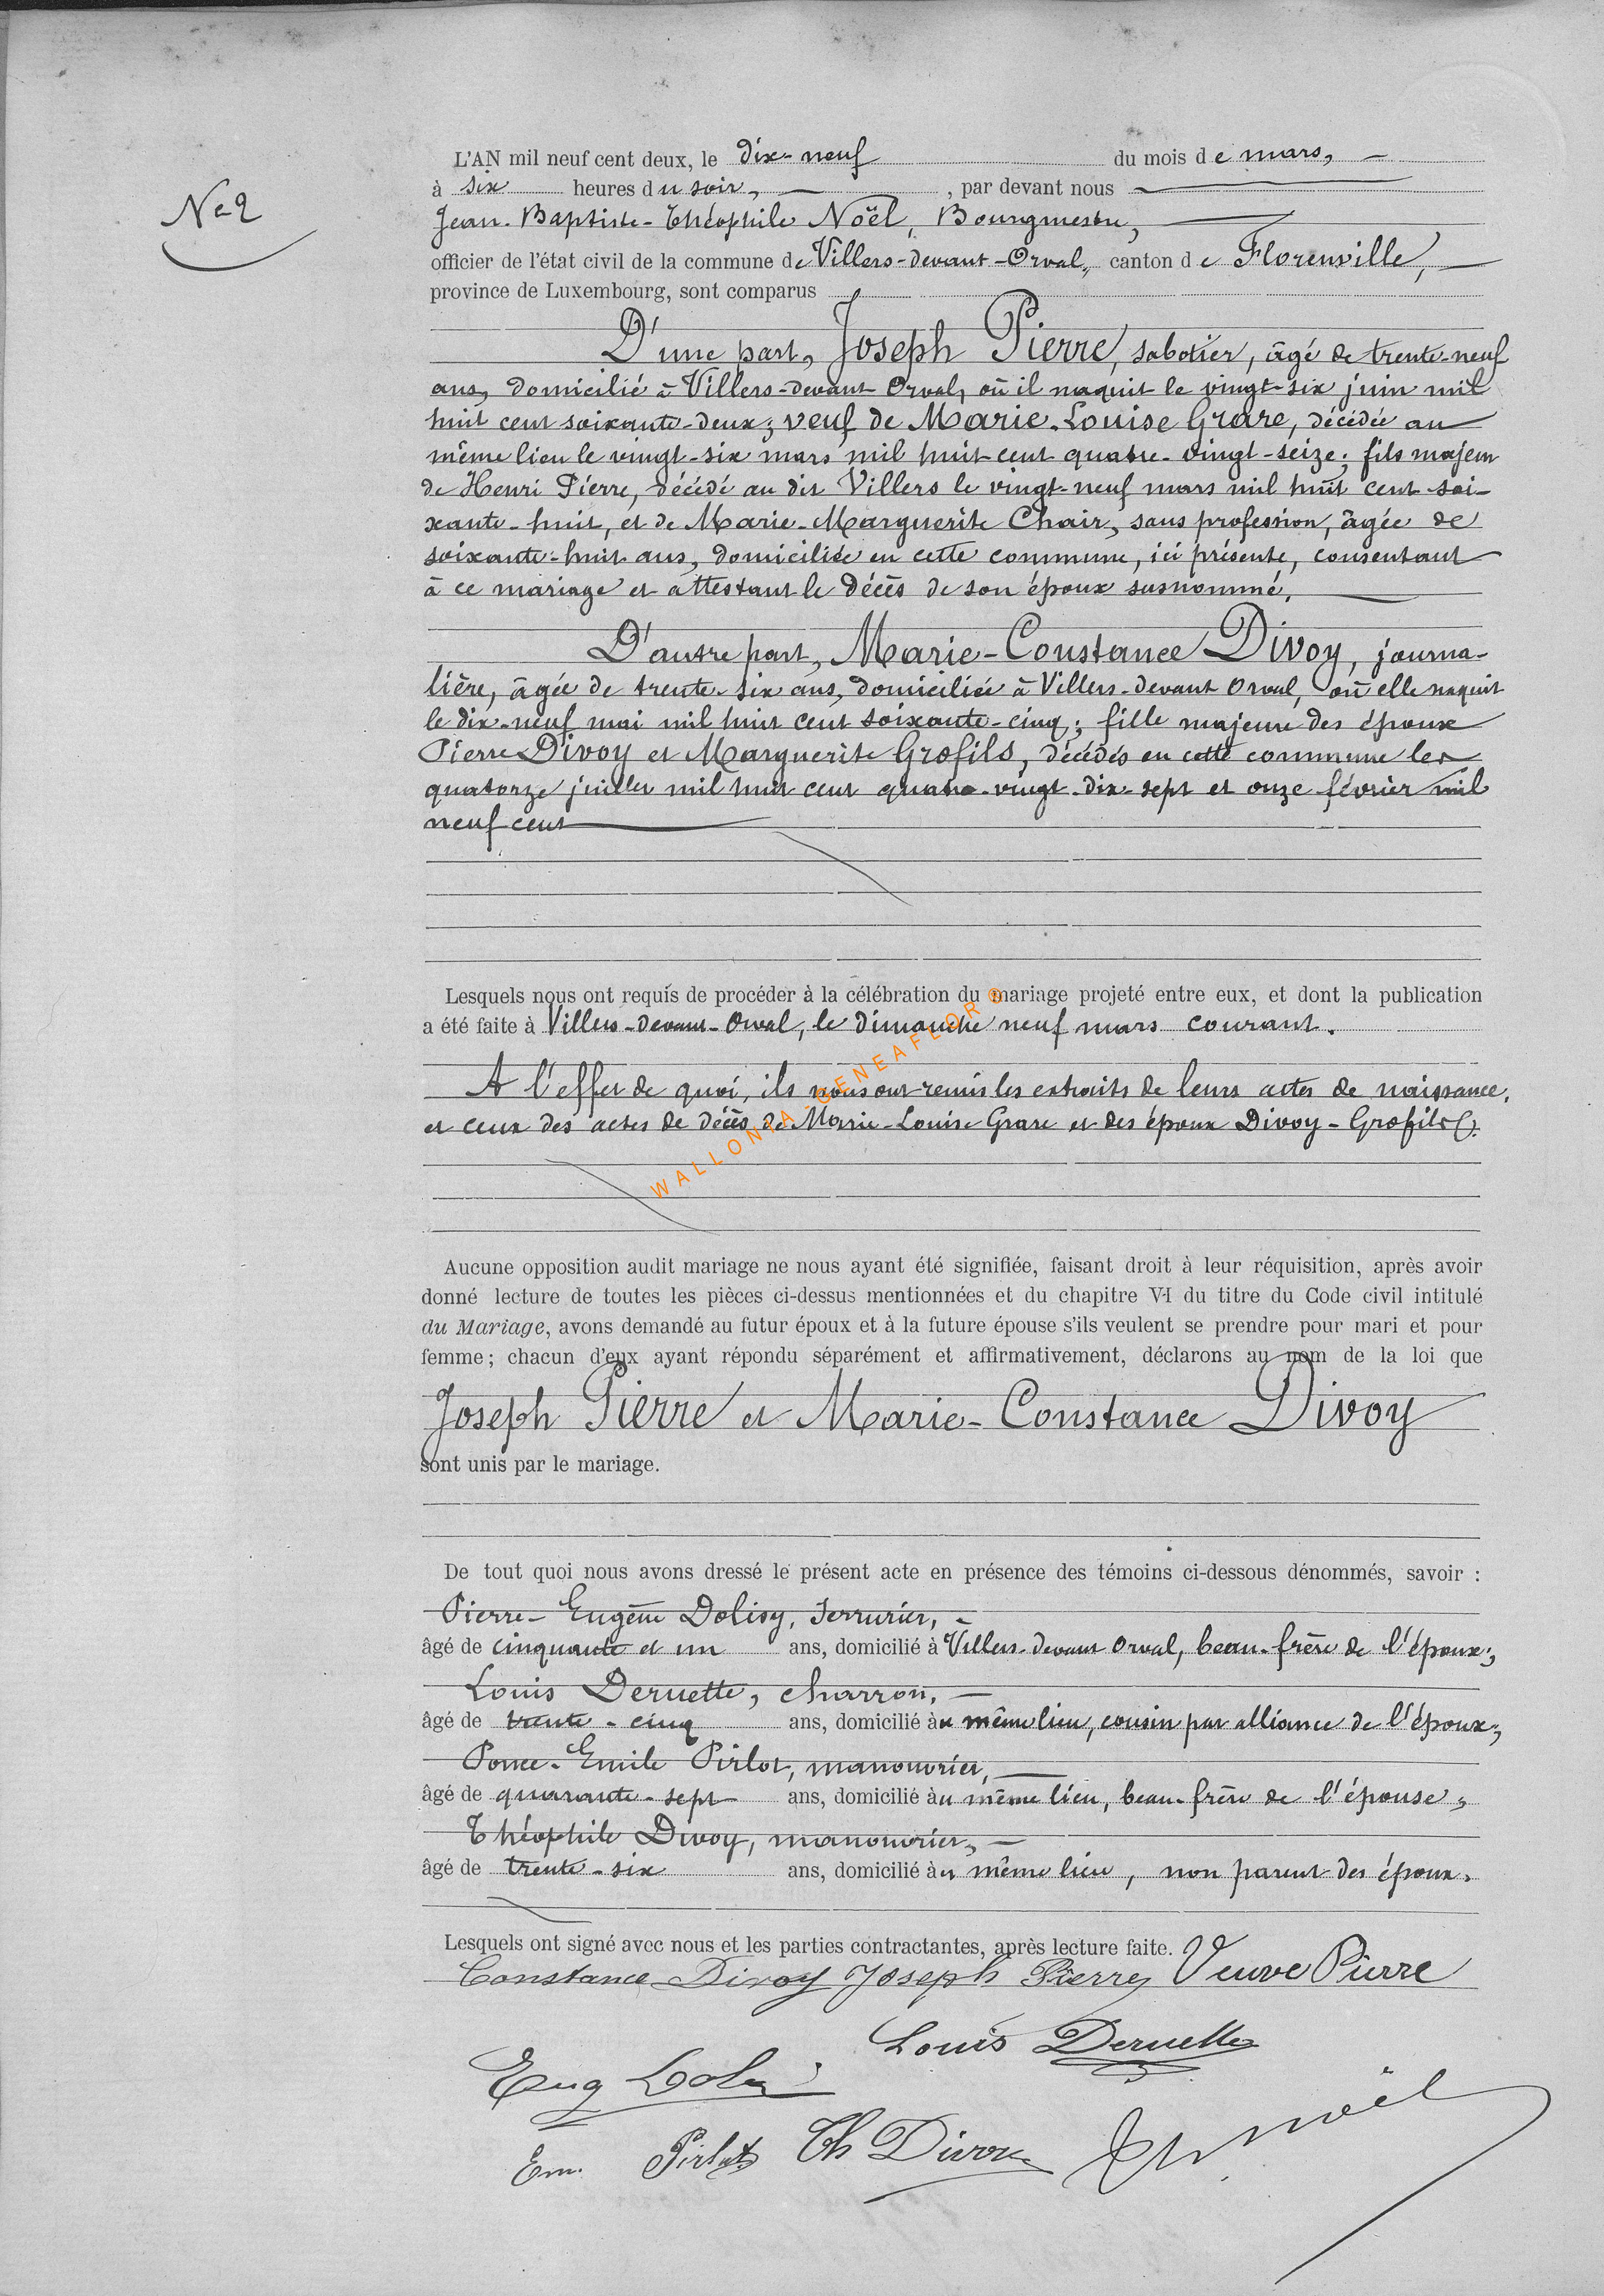 No 2
L'AN mil neuf cent deux, le dix-neuf du mois de mars,
à six heures du soir, , par devant nous
Jean-Baptiste-Théophile Noël, Bourgmestre,
officier de l'état civil de la commune de Villers-devant-Orval, canton de Florenville,
province de Luxembourg, sont comparus
D'une part, Joseph Pierre, sabotier, âgé de trente-neuf
ans, domicilié à Villers-devant-Orval, où il naquit le vingt-six juin mil
huit cent soixante-deux; veuf de Marie-Louise Grare, décédée au
même lieu le vingt-six mars mil huit cent quatre-vingt-seize; fils majeur
de Henri Pierre, décédé au dit Villers le vingt-neuf mars mil huit cent soi-
xante-huit, et de Marie-Marguerite Chair, sans profession, âgée de
soixante-huit ans, domiciliée en cette commune, ici présente, consentant
à ce mariage et attestant le décès de son époux susnommé.
D'autre part, Marie-Constance Divoy, journa-
lière, âgée de trente-six ans, domiciliée à Villers-devant Orval, où elle naquit
le dix-neuf mai mil huit cent soixante-cinq; fille majeure des époux
Pierre Divoy et Marguerite Grofils, décédés en cette commune les
quatorze juillet mil huit cent quatre-vingt-dix-sept et onze février mil
neuf cent
Lesquels nous ont requis de procéder à la célébration du mariage projeté entre eux, et dont la publication
a été faite à Villers-devant-Orval, le dimanche neuf mars courant.
A l'effet de quoi, ils nous ont remis les extraits de leurs actes de naissance,
et ceux des actes de décès de Marie-Louise Grare et des époux Divoy-Grofils.
WALLONIA-GENEAFLOR®
Aucune opposition audit mariage ne nous ayant été signifiée, faisant droit à leur réquisition, après avoir
donné lecture de toutes les pièces ci-dessus mentionnées et du chapitre VI du titre du Code civil intitulé
du Mariage, avons demandé au futur époux et à la future épouse s'ils veulent se prendre pour mari et pour
femme; chacun d'eux ayant répondu séparément et affirmativement, déclarons au nom de la loi que
Joseph Pierre et Marie-Constance Divoy
sont unis par le mariage.
De tout quoi nous avons dressé le présent acte en présence des témoins ci-dessous dénommés, savoir :
Pierre-Eugène Dolisy, serrurier,
âgé de cinquante et un ans, domicilié à Villers-devant Orval, beau-frère de l'époux;
Louis Deruette, charron,
âgé de trente-cinq ans, domicilié au même lieu, cousin par alliance de l'époux;
Ponce-Emile Pirlot, manouvrier,
âgé de quarante-sept ans, domicilié au même lieu, beau-frère de l'épouse,
Théophile Divoy, manouvrier,
âgé de trente-six ans, domicilié au même lieu, non parent des époux.
Lesquels ont signé avec nous et les parties contractantes, après lecture faite. Veuve Pierre
Constance Divoy Joseph Pierre
Louis Deruette
Eug Dolisy
Em. Pirlot Th Divoy Noël